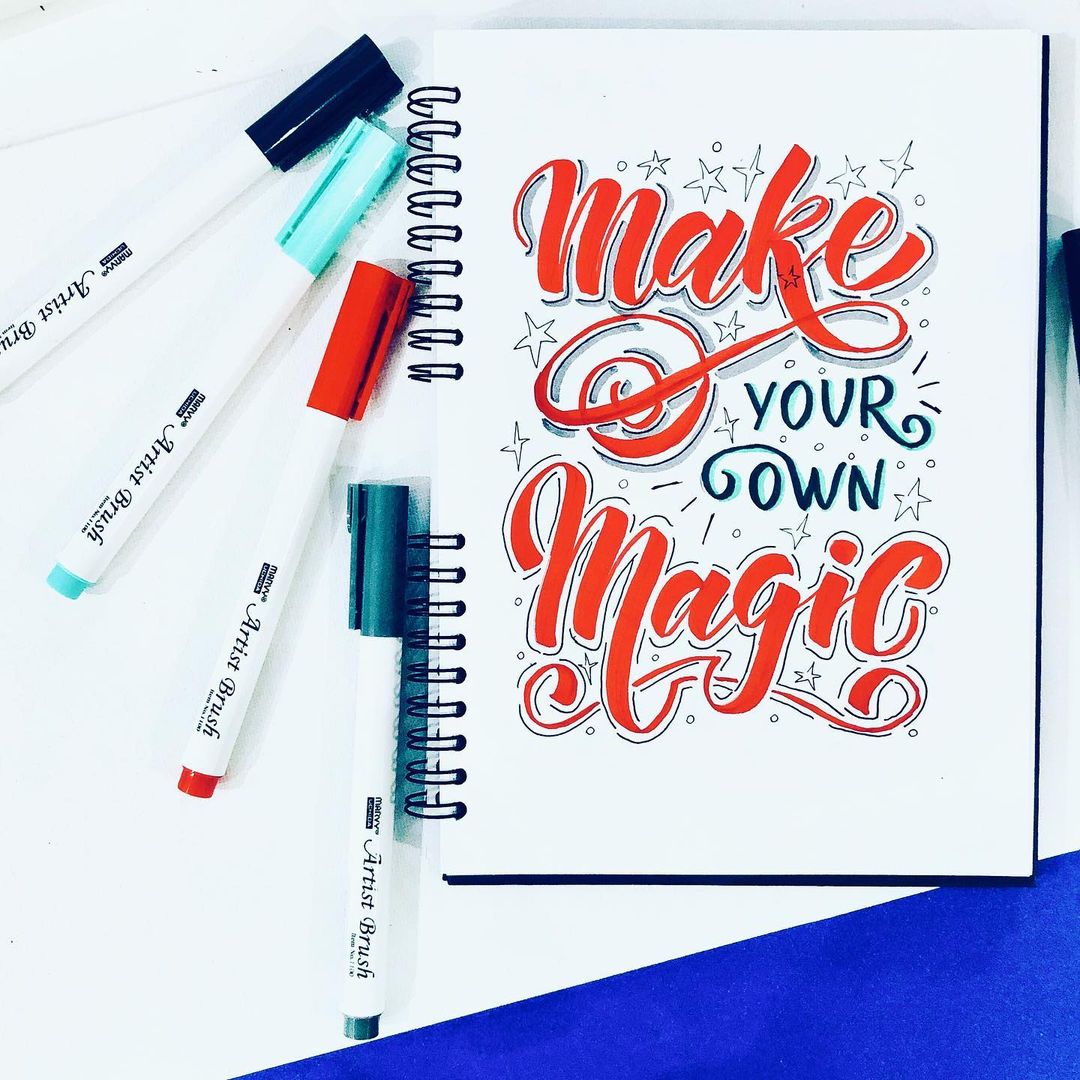 Make
YOUR
OWN
Magic
MARVY®
UCHIDA
Artist Brush
MARVY®
UCHIDA
Artist Brush
Item No.1100
MARVY®
UCHIDA
Artist Brush
Item No.1100
MARVY®
UCHIDA
Artist Brush
Item No.1100